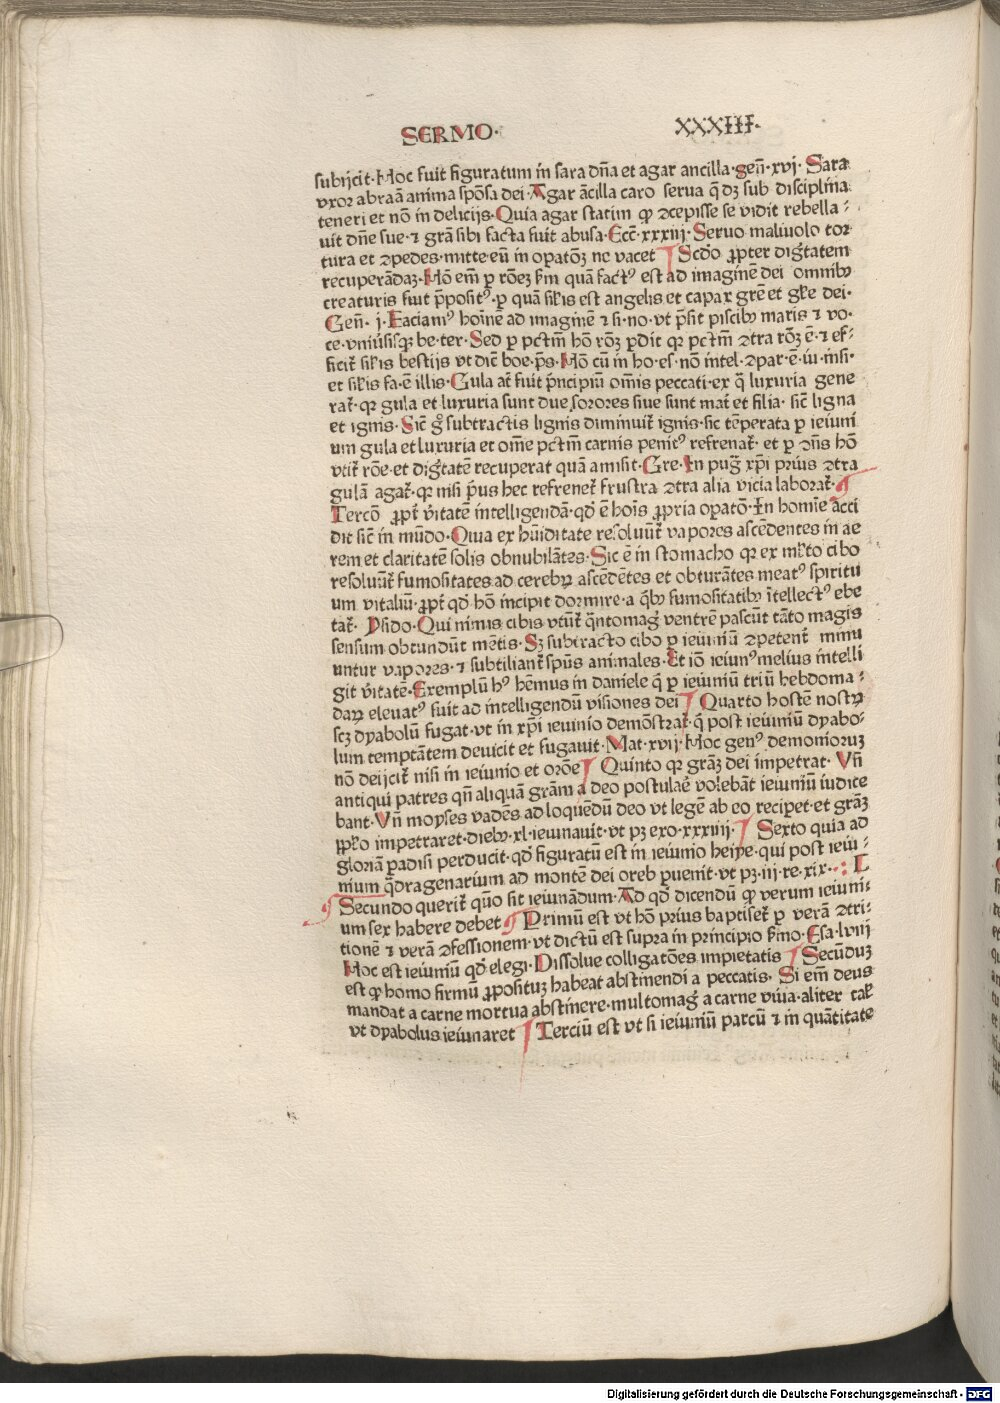 SERMO· XXXIII·
subijcit·Hoc fuit figuratum in sara dn̄a et agar ancilla·gen̄·xvj· Sara
vxor abraā anima spōsa dei·Agar ācilla caro serua q̄ dꝫ sub disciplina
teneri et nō in delicijs·Quia agar statim ꝙ ꝯcepisse se vidit rebella⸗
uit dn̄e sue·⁊ grām sibi facta fuit abusa·Ecc̄·xxxiij·Seruo maliuolo tor
tura et ꝯpedes·mitte eū in opatōꝫ nc vacet Scd̄o ꝓpter dig̃tatem
recuperādaꝫ·Hō em̄ ꝑ rōeꝫ ẜm quā factꝰ est ad imaginē dei omnibꝰ
creaturis fuit p̄positꝰ·ꝑ quā sil̓is est angelis et capax gr̄e et gl̓e dei·
Gen̄· j·Faciamꝰ hoīnē ad imaginē ⁊ si·no·vt p̄sit piscibꝰ maris ⁊ vo·
ce·vniu̓sisqꝫ be·ter·Sed ꝑ pctm̄ hō rōꝫ ꝑdit qꝛ pctm̄ ꝯtra rōꝫ ē·⁊ ef⸗
ficit̄ sil̓is bestijs vt dic̄ boe·p̄s·Hō cū in ho·es̓·nō intel·ꝯpar·ē·iu·insi·
et sil̓is fa·ē illis·Gula at̄ fuit p̄ncipiū om̄is peccati·ex q̄ luxuria gene
rat̄·qꝛ gula et luxuria sunt due sorores siue sunt mat̄ et filia· sic̄ ligna
et ignis·Sic̄ g̊ subtractis lignis diminuit̄ ignis·sic tēperata ꝑ ieiuni
um gula et luxuria et om̄e pctm̄ carnis penitꝰ refrenat̄· et ꝑ ꝯn̄s hō
vtit̄ rōe·et dig̃tatē recuperat quā amisit·Gre·In pug̃ xp̄i prius ꝯtra
gulā agat̄·qꝛ nisi p̄us hec refrenet̄ frustra ꝯtra alia vicia laborat̄·
Tercō ꝓpt̄ v̓itatē intelligendā·qd̓ ē hoīs ꝓpria opatō·In homīe acci
dit sic̄ in mūdo·Quia ex hūiditate resoluūt̄ vapores ascēdentes in ae
rem et claritatē solis obnubilātes·Sic ē in stomacho qꝛ ex ml̓to cibo
resoluūt̄ fumositates ad cerebꝝ ascēdētes et obturātes meatꝰ spiritu
um vitaliū·ꝓpt̄ qd̓ hō incipit dormire·a qͥbꝰ fumositatibꝰ ītellectꝰ ebe
tat̄· ysido·Qui nimis cibis vtūt̄ q̄ntomag̓ ventrē pascūt tāto magis
sensum obtundūt mētis·Sꝫ subtracto cibo ꝑ ieiuniū ꝯpetent̄ minu
untur vapores·⁊ subtiliant̄ spūs animales·Et iō ieiunꝰ melius intelli
git v̓itatē·Exemplū hꝰ hēmus in daniele q̄ ꝑ ieiuniū triū hebdoma⸗
daꝝ eleuatꝰ fuit ad intelligendū visiones dei Quarto hostē nostꝝ
scꝫ dyabolū fugat·vt in xp̄i ieiunio demōstrat̄·q̄ post ieiuniū dyabo⸗
lum temptātem deuicit et fugauit·Mat·xvij·Hoc genꝰ demonioruꝫ
nō deijcit̄ nisi in ieiunio et orōe Quinto qꝛ grāꝫ dei impetrat· Vn̄
antiqui patres qn̄ aliquā grām a deo postulae̓ volebāt ieiuniū iudice
bant·Vn̄ moyses vadēs ad loquēdū deo vt legē ab eo recipet·et grāꝫ
ppl̓o impetraret·diebꝰ·xl·ieiunauit·vt pꝫ exo·xxxiiij· Sexto quia ad
gloriā ꝑadisi perducit·qd̓ figuratū est in ieiunio helye·qui post ieiu⸗
nium q̄dragenarium ad montē dei oreb ꝑuenit·vt pꝫ·iij·re·xix·
Secundo querit̄ quō sit ieiunādum·Ad qd̓ dicendū ꝙ verum ieiuni⸗
um sex habere debet Primū est vt hō prius baptiset̄ ꝑ verā ꝯtri⸗
tionē ⁊ verā ꝯfessionem·vt dictū est supra in principio ẜmo·Esa·lviij
Hoc est ieiuniū qd̓ elegi·Dissolue colligatōes impietatis Secūduꝫ
est ꝙ homo firmū ꝓposituꝫ habeat abstinendi a peccatis· Si em̄ deus
mandat a carne mortua abstinere·multomag̓ a carne viua·aliter tal̓
vt dyabolus ieiunaret Terciū est vt si ieiuniū parcū ⁊ in quātitate
Digitalisierung gefördert durch die Deutsche Forschungsgemeinschaft - DFG